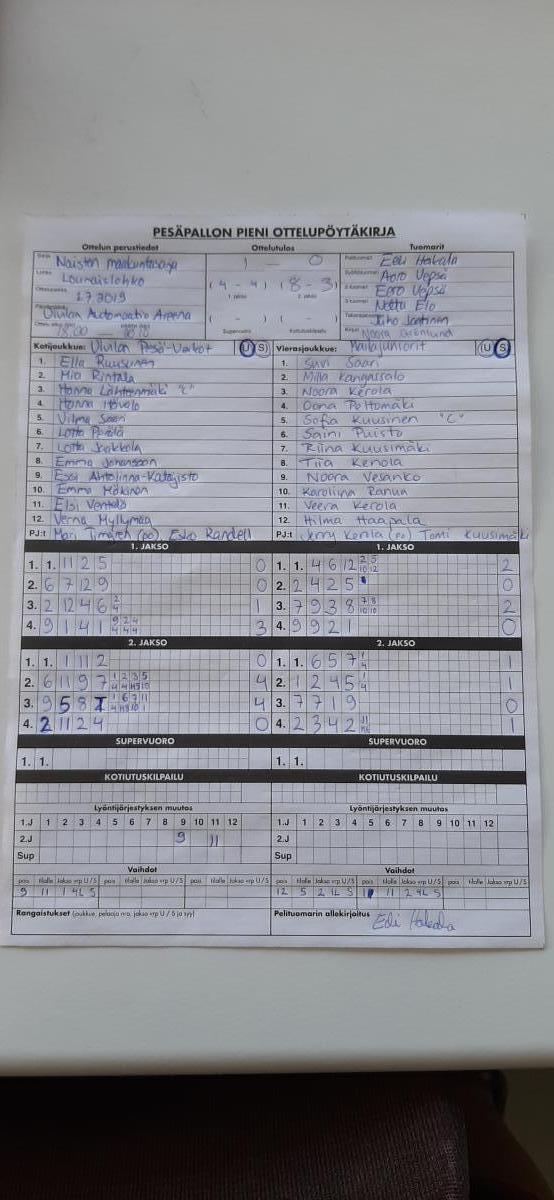 PESÄPALLON PIENI OTTELUPÖYTÄKIRJA
Ottelun perustiedot Ottelutulos Tuomarit
Naisten maakuntasarja 1 — 0 Eeli Hakala
Lounaislohko Aaro Uopsä
1.7.2019 (4 - 4) (8 - 3) Eero Uopsä
1. jakso 2. jakso Nettu Elo
Ulvilan Automaatio Areena ( - ) ( - ) Juho
18.00 Supervuoro Kotiutuskilpailu Noora
Kotijoukkue: Ulvilan Pesä-Veikot U S Vierasjoukkue: Mailajuniorit U S
1. Ella Ruusunen 1. Suvi Saari
2. Mia Rintala 2. Milla Kangassalo
3. Hanna Lähteenmäki "C" 3. Noora Kerola
4. Hanna 4. Oona Peltomäki
5. Vilma Saari 5. Sofia Kuusinen "C"
6. Lotta 6. Saini Puisto
7. Lotta Jaakkola 7. Riina Kuusimäki
8. Emma Johansson 8. Tiia Kenola
9. Essi Ahtolinna-Katajisto 9. Noora Vesanko
10. Emma Mäkinen 10. Karoliina Ranua
11. Elsi Ventola 11. Veera Kerola
12. Verna Myllymaa 12. Hilma Haapala
PJ:t Mari (pj) Esko Randell PJ:t Jerry Kerola (pj) Tomi Kuusimäki
1. JAKSO 1. JAKSO
1. 1. 11 2 5 0 1. 1. 4 6 12 2 5 10 12 2
2. 6 7 12 9 0 2. 2 4 2 5 0
3. 2 12 4 6 2 4 1 3. 7 9 3 8 7 8 10 10 2
4. 9 1 4 1 9 2 4 4 4 4 3 4. 9 9 2 1 0
2. JAKSO 2. JAKSO
1. 1. 1 11 2 0 1. 1. 6 5 7 1 4 1
2. 6 11 9 7 1 2 3 5 4 2. 1 2 4 5 1 4 1
3. 9 5 8 7 1 6 7 11 4 3. 7 7 1 9 0
4. 2 11 2 4 0 4. 2 3 4 2 11 1
SUPERVUORO SUPERVUORO
1. 1. 1. 1.
KOTIUTUSKILPAILU KOTIUTUSKILPAILU
Lyöntijärjestyksen muutos Lyöntijärjestyksen muutos
1.J 1 2 3 4 5 6 7 8 9 10 11 12 1.J 1 2 3 4 5 6 7 8 9 10 11 12
2.J 9 11 2.J
Sup Sup
Vaihdot Vaihdot
pois tilalle Jakso vrp U/S pois tilalle Jakso vrp U/S pois tilalle Jakso vrp U/S pois tilalle Jakso vrp U/S pois tilalle Jakso vrp U/S pois tilalle Jakso vrp U/S
9 11 1 4L S 12 5 2 1L S 11 2 4L S
Rangaistukset (joukkue, pelaaja nro, jakso vrp U / S ja syy) Pelituomarin allekirjoitus
Eeli Hakala